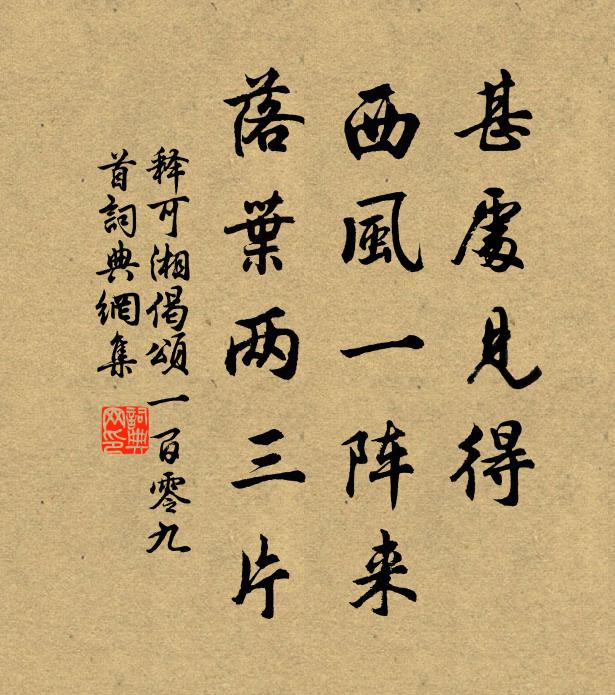 甚處見得
西風一阵来
落葉两三片
释可湘偈頌一百零九
首詞典網集
詞典网印